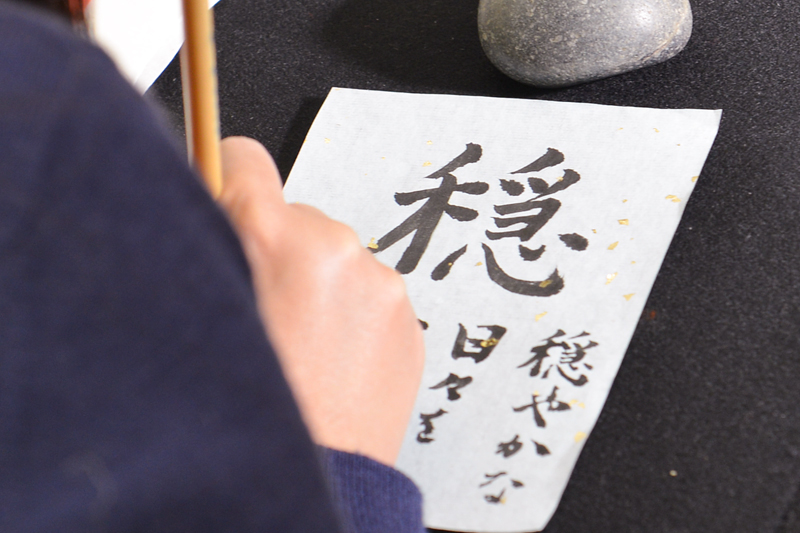 穏
穏やかな
日々を